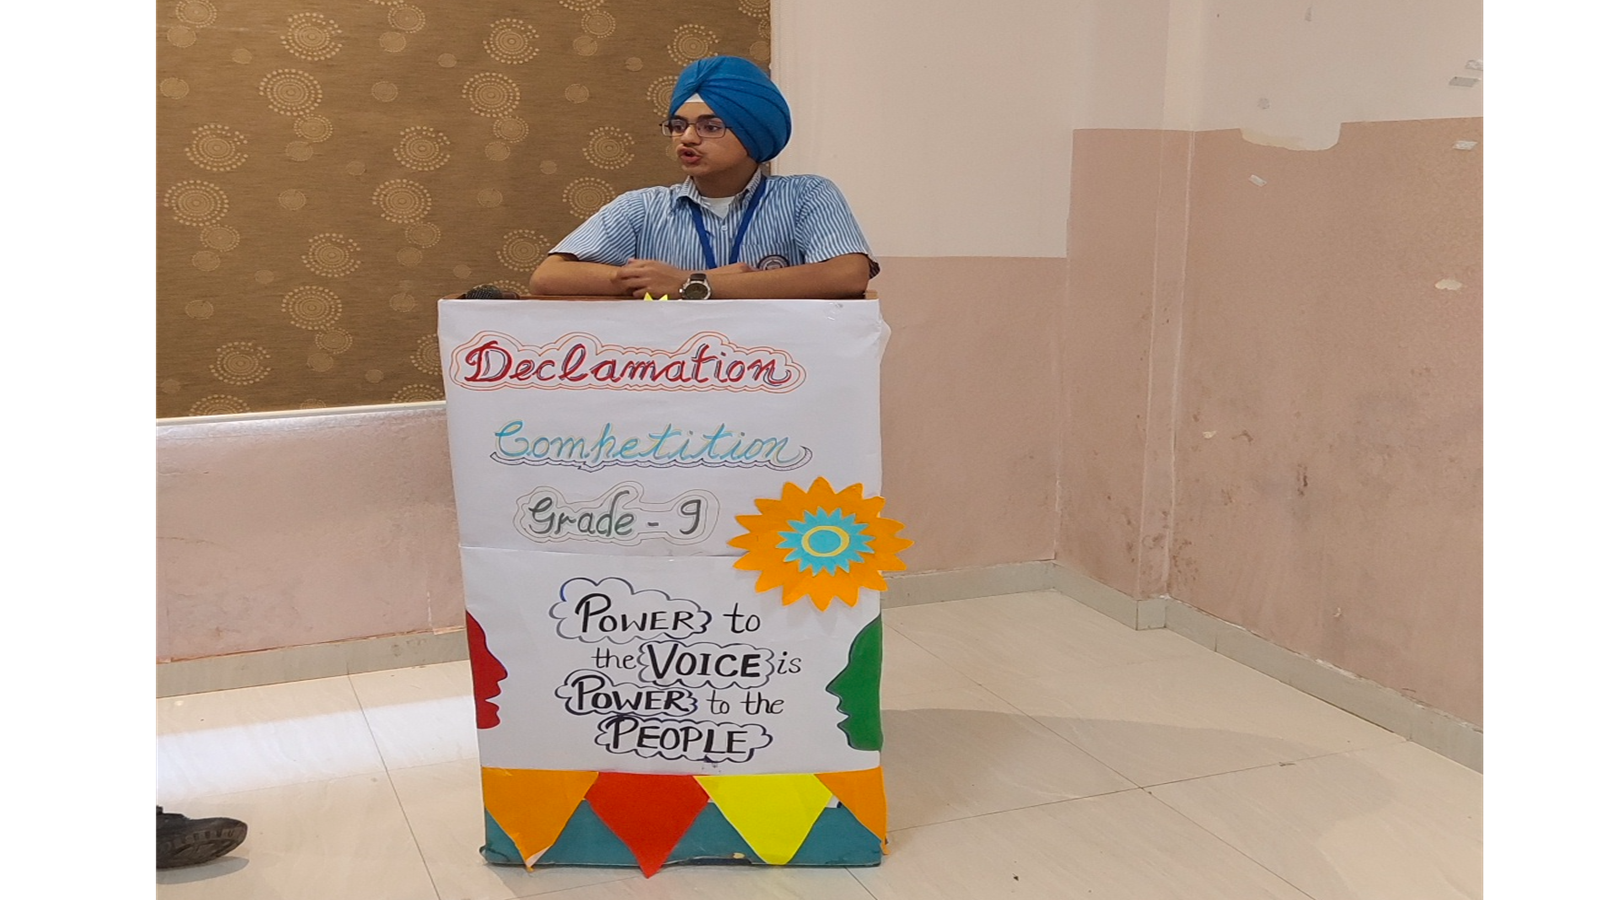 Declamation
Competition
Grade - 9
POWER to
the VOICE is
POWER to the
PEOPLE